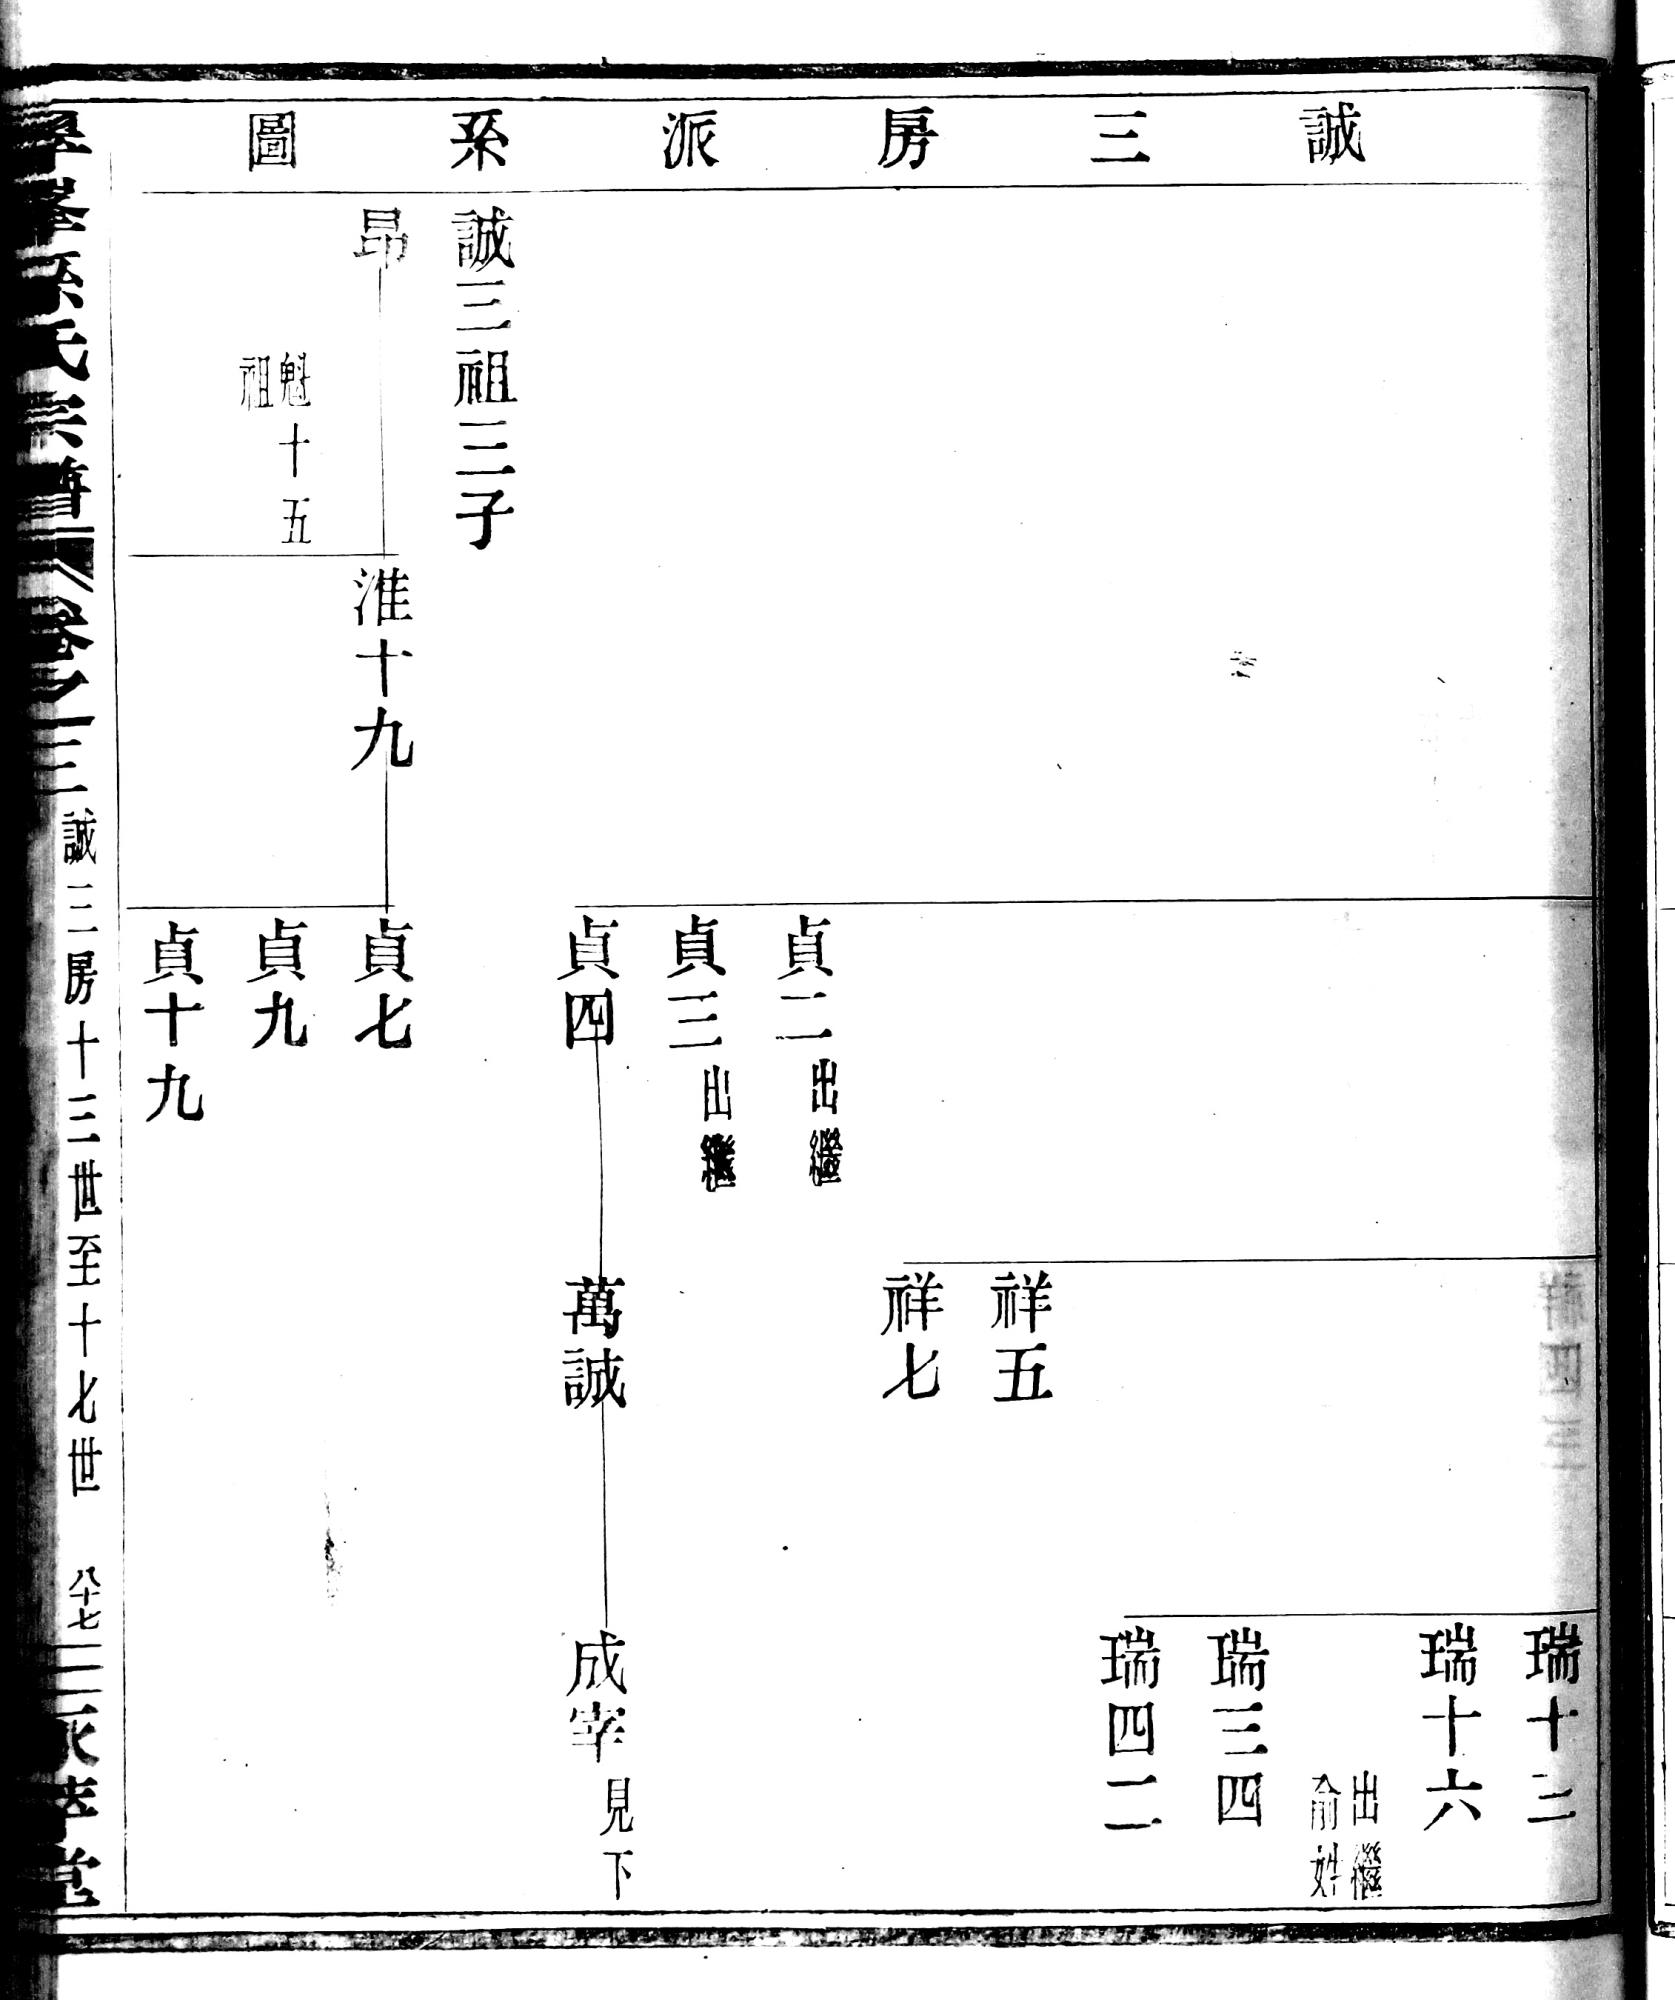 誠三房派系圖
瑞十二
瑞十六
出繼
俞姓
瑞三四
瑞四二
祥五
祥七
貞二出繼
貞三出繼
貞四
萬誠
成宰見下
誠三祖三子
昂
淮十九
貞七
魁十五
祖
貞九
貞十九
孫氏宗譜
卷之三
誠三房十三世至十七世
八十七
堂